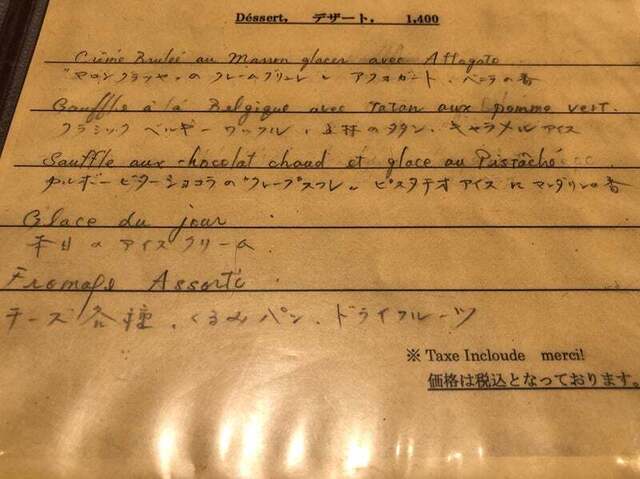 Déssert, デザート, 1,400
Crème Brulée au Marron glacer avec Affogato
"マロングラッセ"の クレームブリュレ と アフォガート、バニラの香
Gauffle à la Belgique avec Tatan aux pomme vert.
クラシック ベルギーワッフル、玉林のタタン、キャラメルアイス
Souffle aux chocolat chaud et glace au Pistaché
カルボービターショコラの"クレープスフレ" ピスタチオアイス にマンダリンの香
Glace du jour
本日のアイスクリーム
Fromafe Assorti
チーズ各種、くるみパン、ドライフルーツ
※ Taxe Incloude merci!
価格は税込となっております。